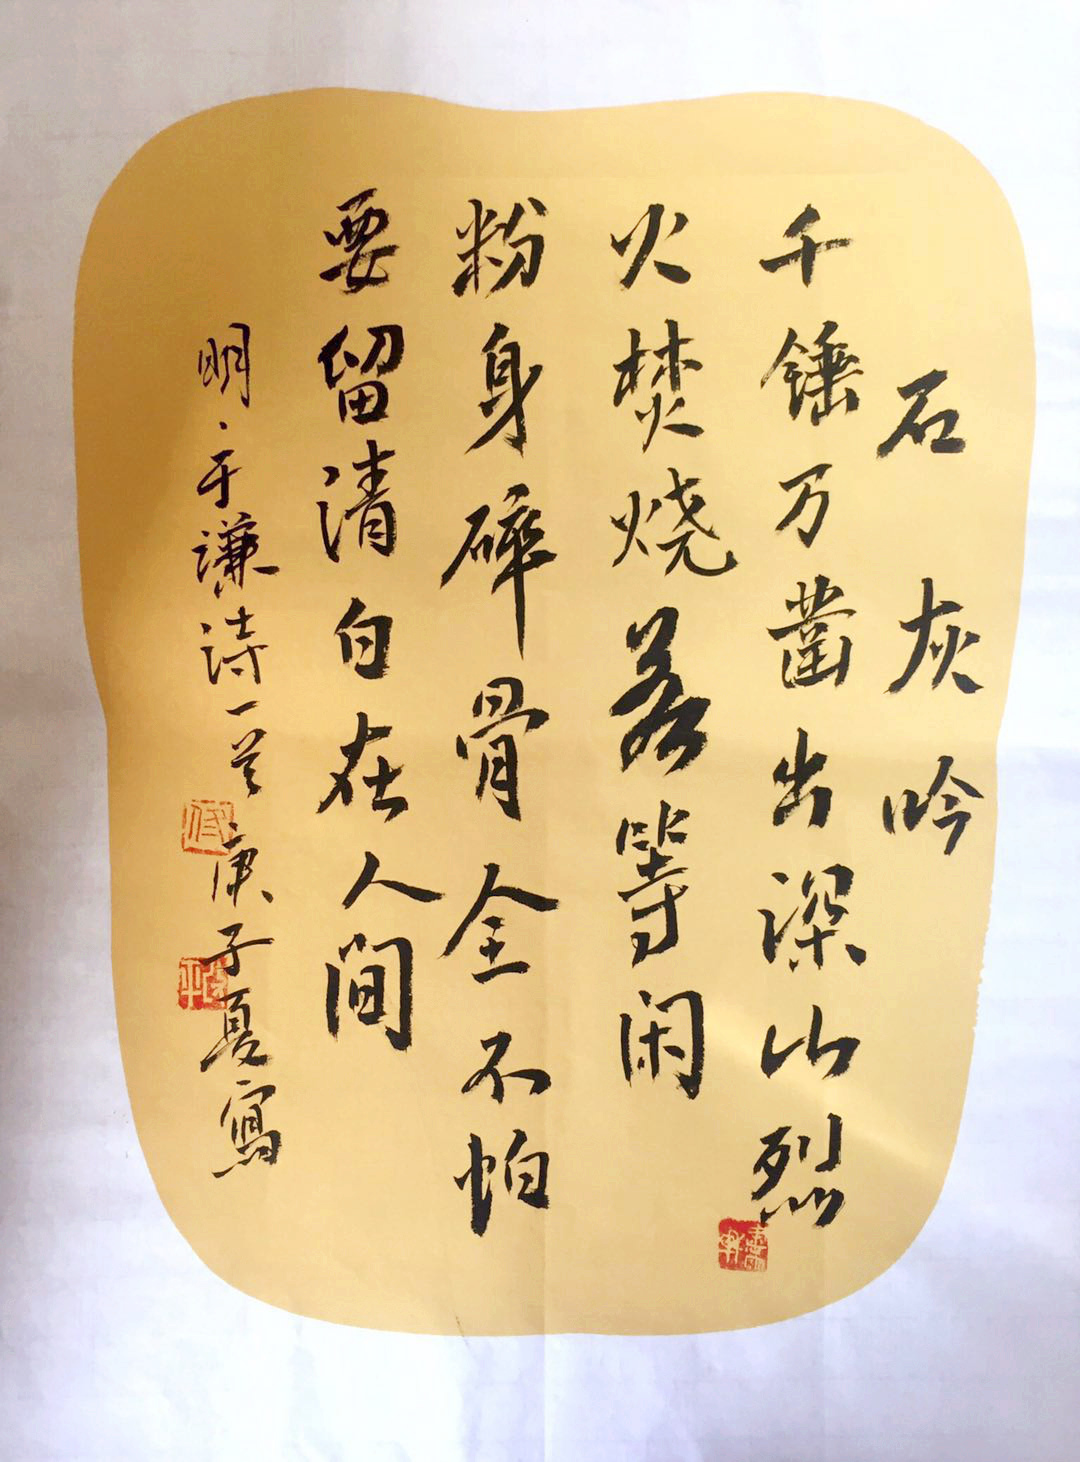 石灰吟
千锤万凿出深山烈
火焚烧若等闲
粉身碎骨全不怕
要留清白在人间
明、于谦诗一首庚子夏寫